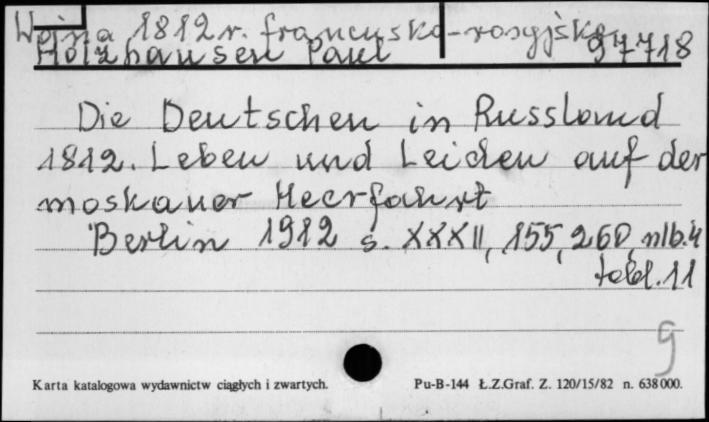 Wojna 1812 r. francusko-rosyjska
Holzhausen Paul 97718
Die Deutschen in Russland
1812. Leben und Leiden auf der
moskauer Heerfahrt
Berlin 1912 s. XXXII, 155, 260, nlb. 4
tabl. 11
9
Karta katalogowa wydawnictw ciągłych i zwartych. Pu-B-144 Ł.Z.Graf. Z. 120/15/82 n. 638000.